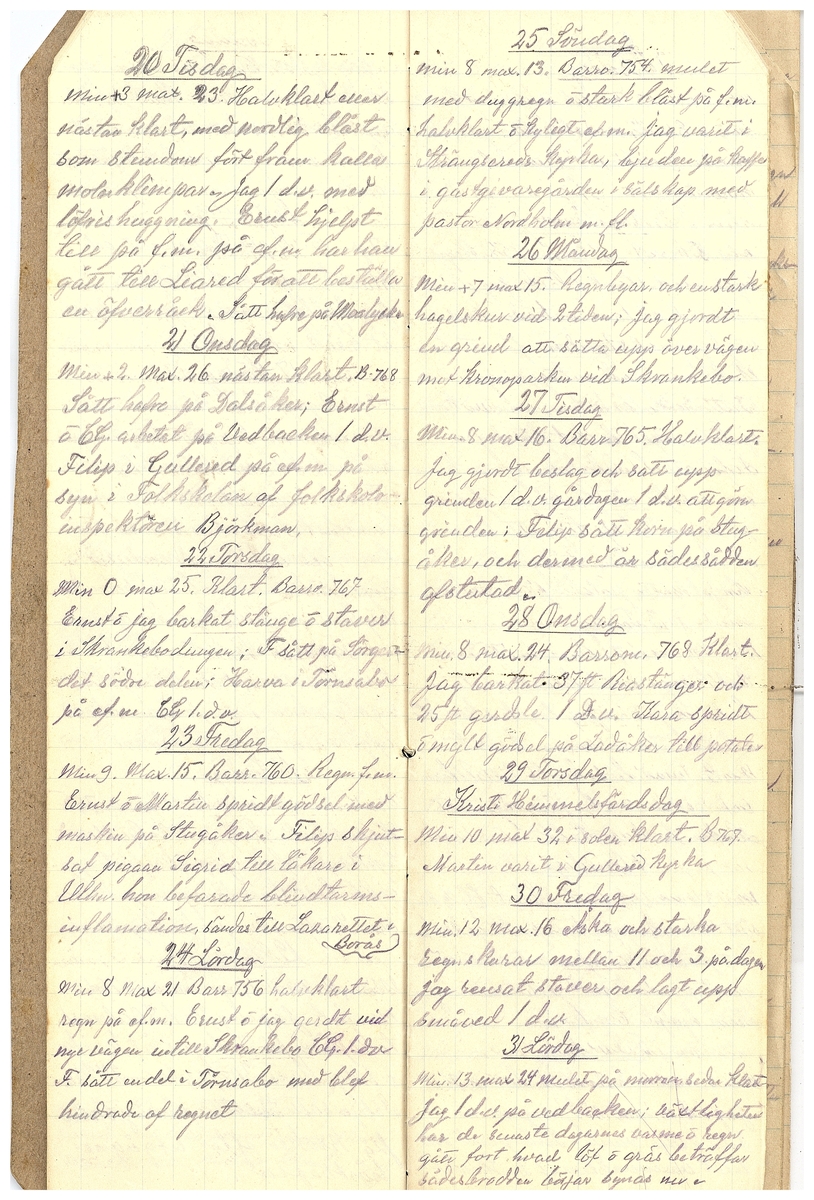 20 Tisdag
Min +3 max. 23. Halvklart eller
nästan klart, med nordlig blåst
som stundom fört fram kalla
molnklimpar. Jag 1 d.v. med
löfrishuggning. Ernst hjelpt
till på f.m. på ef.m. har han
gått till Liared för att beställa
en öfverråck. Sått hafre på Moalycke
21 Onsdag
Min +2. Max. 26 nästan klart. B. 768
Sått hafre på Dalsåker; Ernst
ö CG. arbetat på Vedbacken 1 d.v.
Filip i Gullered på ef.m. på
syn i Folkskolan af folkskole-
inspektören Björkman.
22 Torsdag
Min 0 max 25. Klart. Barro. 767
Ernst ö jag barkat stänge ö staver
i Skrankebodungen; F sått på
det södre dalen; Harva i Törnsabo
på ef.m. CG 1.d.v.
23 Fredag
Min 9. Max. 15. Barr. 760. Regn f.m.
Ernst ö Martin spridt gödsel med
maskin på Stugåker. Filip skjut-
sat pigan Sigrid till läkare i
Ulhn. hon befarade blindtarms-
inflamation, sändes till Lazarettet i
Borås
24 Lördag
Min 8 Max 21 Barr 756 halvklart
regn på ef.m. Ernst ö jag gerdt vid
nye vägen intill Skrankebo CG. 1. d.v
F. sått en del i Törnsabo med blef
hindrade af regnet
25 Söndag
Min 8 max. 13. Barro. 754. mulet
med duggregn ö stark blåst på f.m.
halvklart ö kyligt ef.m. Jag varit i
Strängsereds Kyrka, bjuden på kaffe
i gästgivaregården i sälskap med
pastor Nordholm m.fl.
26 Måndag
Min +7 max 15. Regnbyar. och en stark
hagelskur vid 2 tiden; Jag gjordt
en grind att sätta upp över vägen
mot Kronoparken vid Skrankebo.
27 Tisdag
Min. 8 max 16. Barr. 765. Halvklart.
Jag gjordt beslag och satt upp
grinden 1 d.v. gårdagen 1 d.v. att göra
grinden; Filip sått korn på Stug-
åker, och dermed är sädessådden
afslutad.
28 Onsdag
Min. 8 max. 24. Barrom. 768 Klart.
Jag barkat 37 ft Riastänger och
25 ft gerdsle 1 D.v. Kara spridt
ö myll gödsel på Ladåker till potater
29 Torsdag
Kristi Himmelsfärdsdag
Min 10 max 32 i solen klart. B 767.
Martin varit i Gullered kyrka
30 Fredag
Min. 12 max. 16 Åska och starka
regnskurar mellan 11 och 3. på dagen
Jag rensat staver och lagt upp
småved 1 d.v.
31 Lördag
Min. 13. max 24 mulet på morron, sedan klart
Jag 1 d.v. på vedbacken; växtligheten
har de senaste dagarnes varme ö regn
gått fort hvad löf ö gräs beträffar
sädesbrodden börjar synas nu.